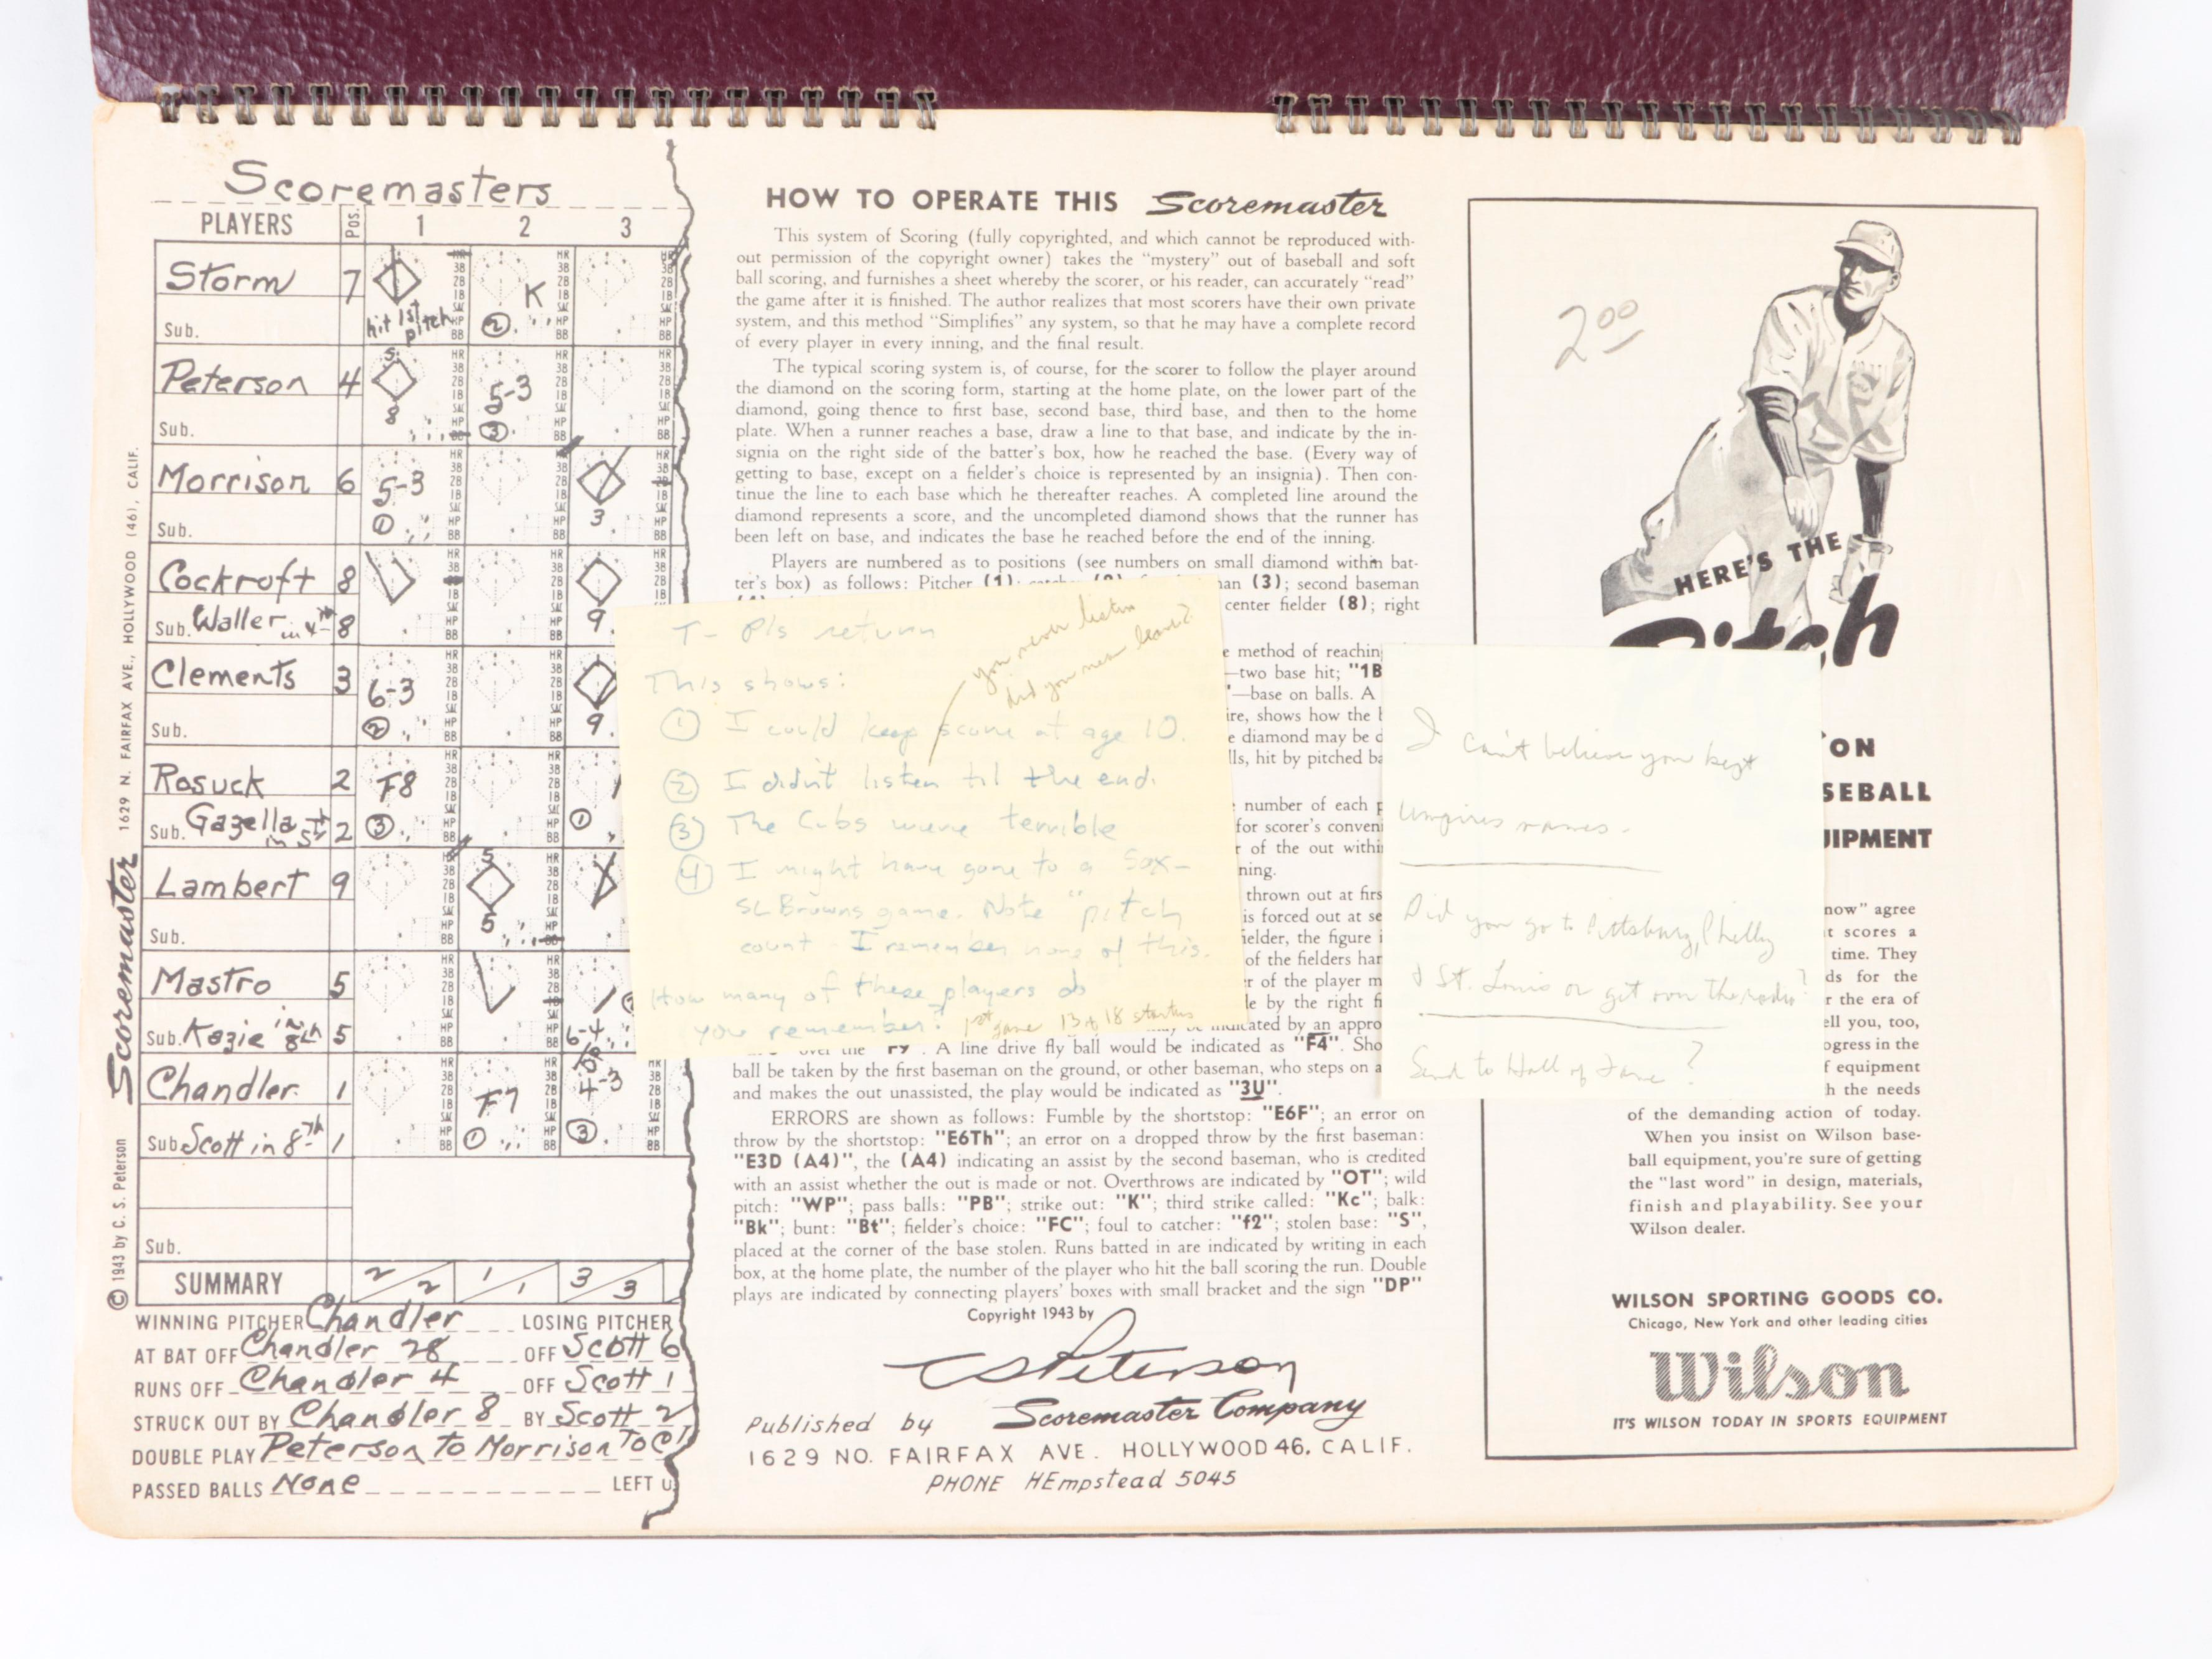 Scoremasters
PLAYERS Pos. 1 2 3
Storm 7
hit 1st pitch
K
2
Sub.
Peterson 4
S
8
5-3
3
Sub.
Morrison 6
5-3
1
3
Sub.
Cockroft 8
9
Sub. Waller in 4th 8
Clements 3
6-3
2
9
Sub.
Rosuck 2
F8
3
1
Sub. Gazella in 5th 2
Lambert 9
S
5
Sub.
Mastro 5
6-4
Sub. Kazie in 8th 5
Chandler 1
F7
1
DP
4-3
3
Sub Scott in 8th 1
Sub.
SUMMARY 2/2 1/1 3/3
WINNING PITCHER Chandler LOSING PITCHER
AT BAT OFF Chandler 28 OFF Scott 6
RUNS OFF Chandler 4 OFF Scott 1
STRUCK OUT BY Chandler 8 BY Scott 2
DOUBLE PLAY Peterson to Morrison To Cl
PASSED BALLS None LEFT
© 1943 by C. S. Peterson Scoremaster 1629 N. FAIRFAX AVE., HOLLYWOOD (46), CALIF.
HOW TO OPERATE THIS Scoremaster
This system of Scoring (fully copyrighted, and which cannot be reproduced with-
out permission of the copyright owner) takes the "mystery" out of baseball and soft
ball scoring, and furnishes a sheet whereby the scorer, or his reader, can accurately "read"
the game after it is finished. The author realizes that most scorers have their own private
system, and this method "Simplifies" any system, so that he may have a complete record
of every player in every inning, and the final result.
The typical scoring system is, of course, for the scorer to follow the player around
the diamond on the scoring form, starting at the home plate, on the lower part of the
diamond, going thence to first base, second base, third base, and then to the home
plate. When a runner reaches a base, draw a line to that base, and indicate by the in-
signia on the right side of the batter's box, how he reached the base. (Every way of
getting to base, except on a fielder's choice is represented by an insignia). Then con-
tinue the line to each base which he thereafter reaches. A completed line around the
diamond represents a score, and the uncompleted diamond shows that the runner has
been left on base, and indicates the base he reached before the end of the inning.
Players are numbered as to positions (see numbers on small diamond within bat-
ter's box) as follows: Pitcher (1); man (3); second baseman
center fielder (8); right
method of reaching
—two base hit; "1B
—base on balls. A
ire, shows how the
diamond may be
lls, hit by pitched ba
number of each
for scorer's conveni
of the out within
ning.
thrown out at firs
is forced out at se
fielder, the figure
of the fielders
of the player
le by the right
indicated by an appro
over the "F9". A line drive fly ball would be indicated as "F4". Sho
ball be taken by the first baseman on the ground, or other baseman, who steps on a
and makes the out unassisted, the play would be indicated as "3U".
ERRORS are shown as follows: Fumble by the shortstop: "E6F"; an error on
throw by the shortstop: "E6Th"; an error on a dropped throw by the first baseman:
"E3D (A4)", the (A4) indicating an assist by the second baseman, who is credited
with an assist whether the out is made or not. Overthrows are indicated by "OT"; wild
pitch: "WP"; pass balls: "PB"; strike out: "K"; third strike called: "Kc"; balk:
"Bk"; bunt: "Bt"; fielder's choice: "FC"; foul to catcher: "f2"; stolen base: "S",
placed at the corner of the base stolen. Runs batted in are indicated by writing in each
box, at the home plate, the number of the player who hit the ball scoring the run. Double
plays are indicated by connecting players' boxes with small bracket and the sign "DP"
Copyright 1943 by
C S Peterson
Published by Scoremaster Company
1629 NO. FAIRFAX AVE. HOLLYWOOD 46, CALIF.
PHONE HEmpstead 5045
T- Pls return
This shows:
① I could keep score at age 10.
you never listen
did you never leave?
② I didn't listen til the end.
③ The Cubs were terrible
④ I might have gone to a Sox-
SL Browns game. Note "pitch
count. I remember none of this.
How many of these players do
you remember? 1st game 13 of 18 starters
I can't believe you kept
umpires names.
Did you go to Pittsburg, Philly
& St. Louis or get over the radio?
Send to Hall of Fame?
2 00
HERE'S THE
Pitch
ON
SEBALL
UIPMENT
now" agree
t scores a
time. They
ds for the
r the era of
ell you, too,
ogress in the
f equipment
h the needs
of the demanding action of today.
When you insist on Wilson base-
ball equipment, you're sure of getting
the "last word" in design, materials,
finish and playability. See your
Wilson dealer.
WILSON SPORTING GOODS CO.
Chicago, New York and other leading cities
Wilson
IT'S WILSON TODAY IN SPORTS EQUIPMENT